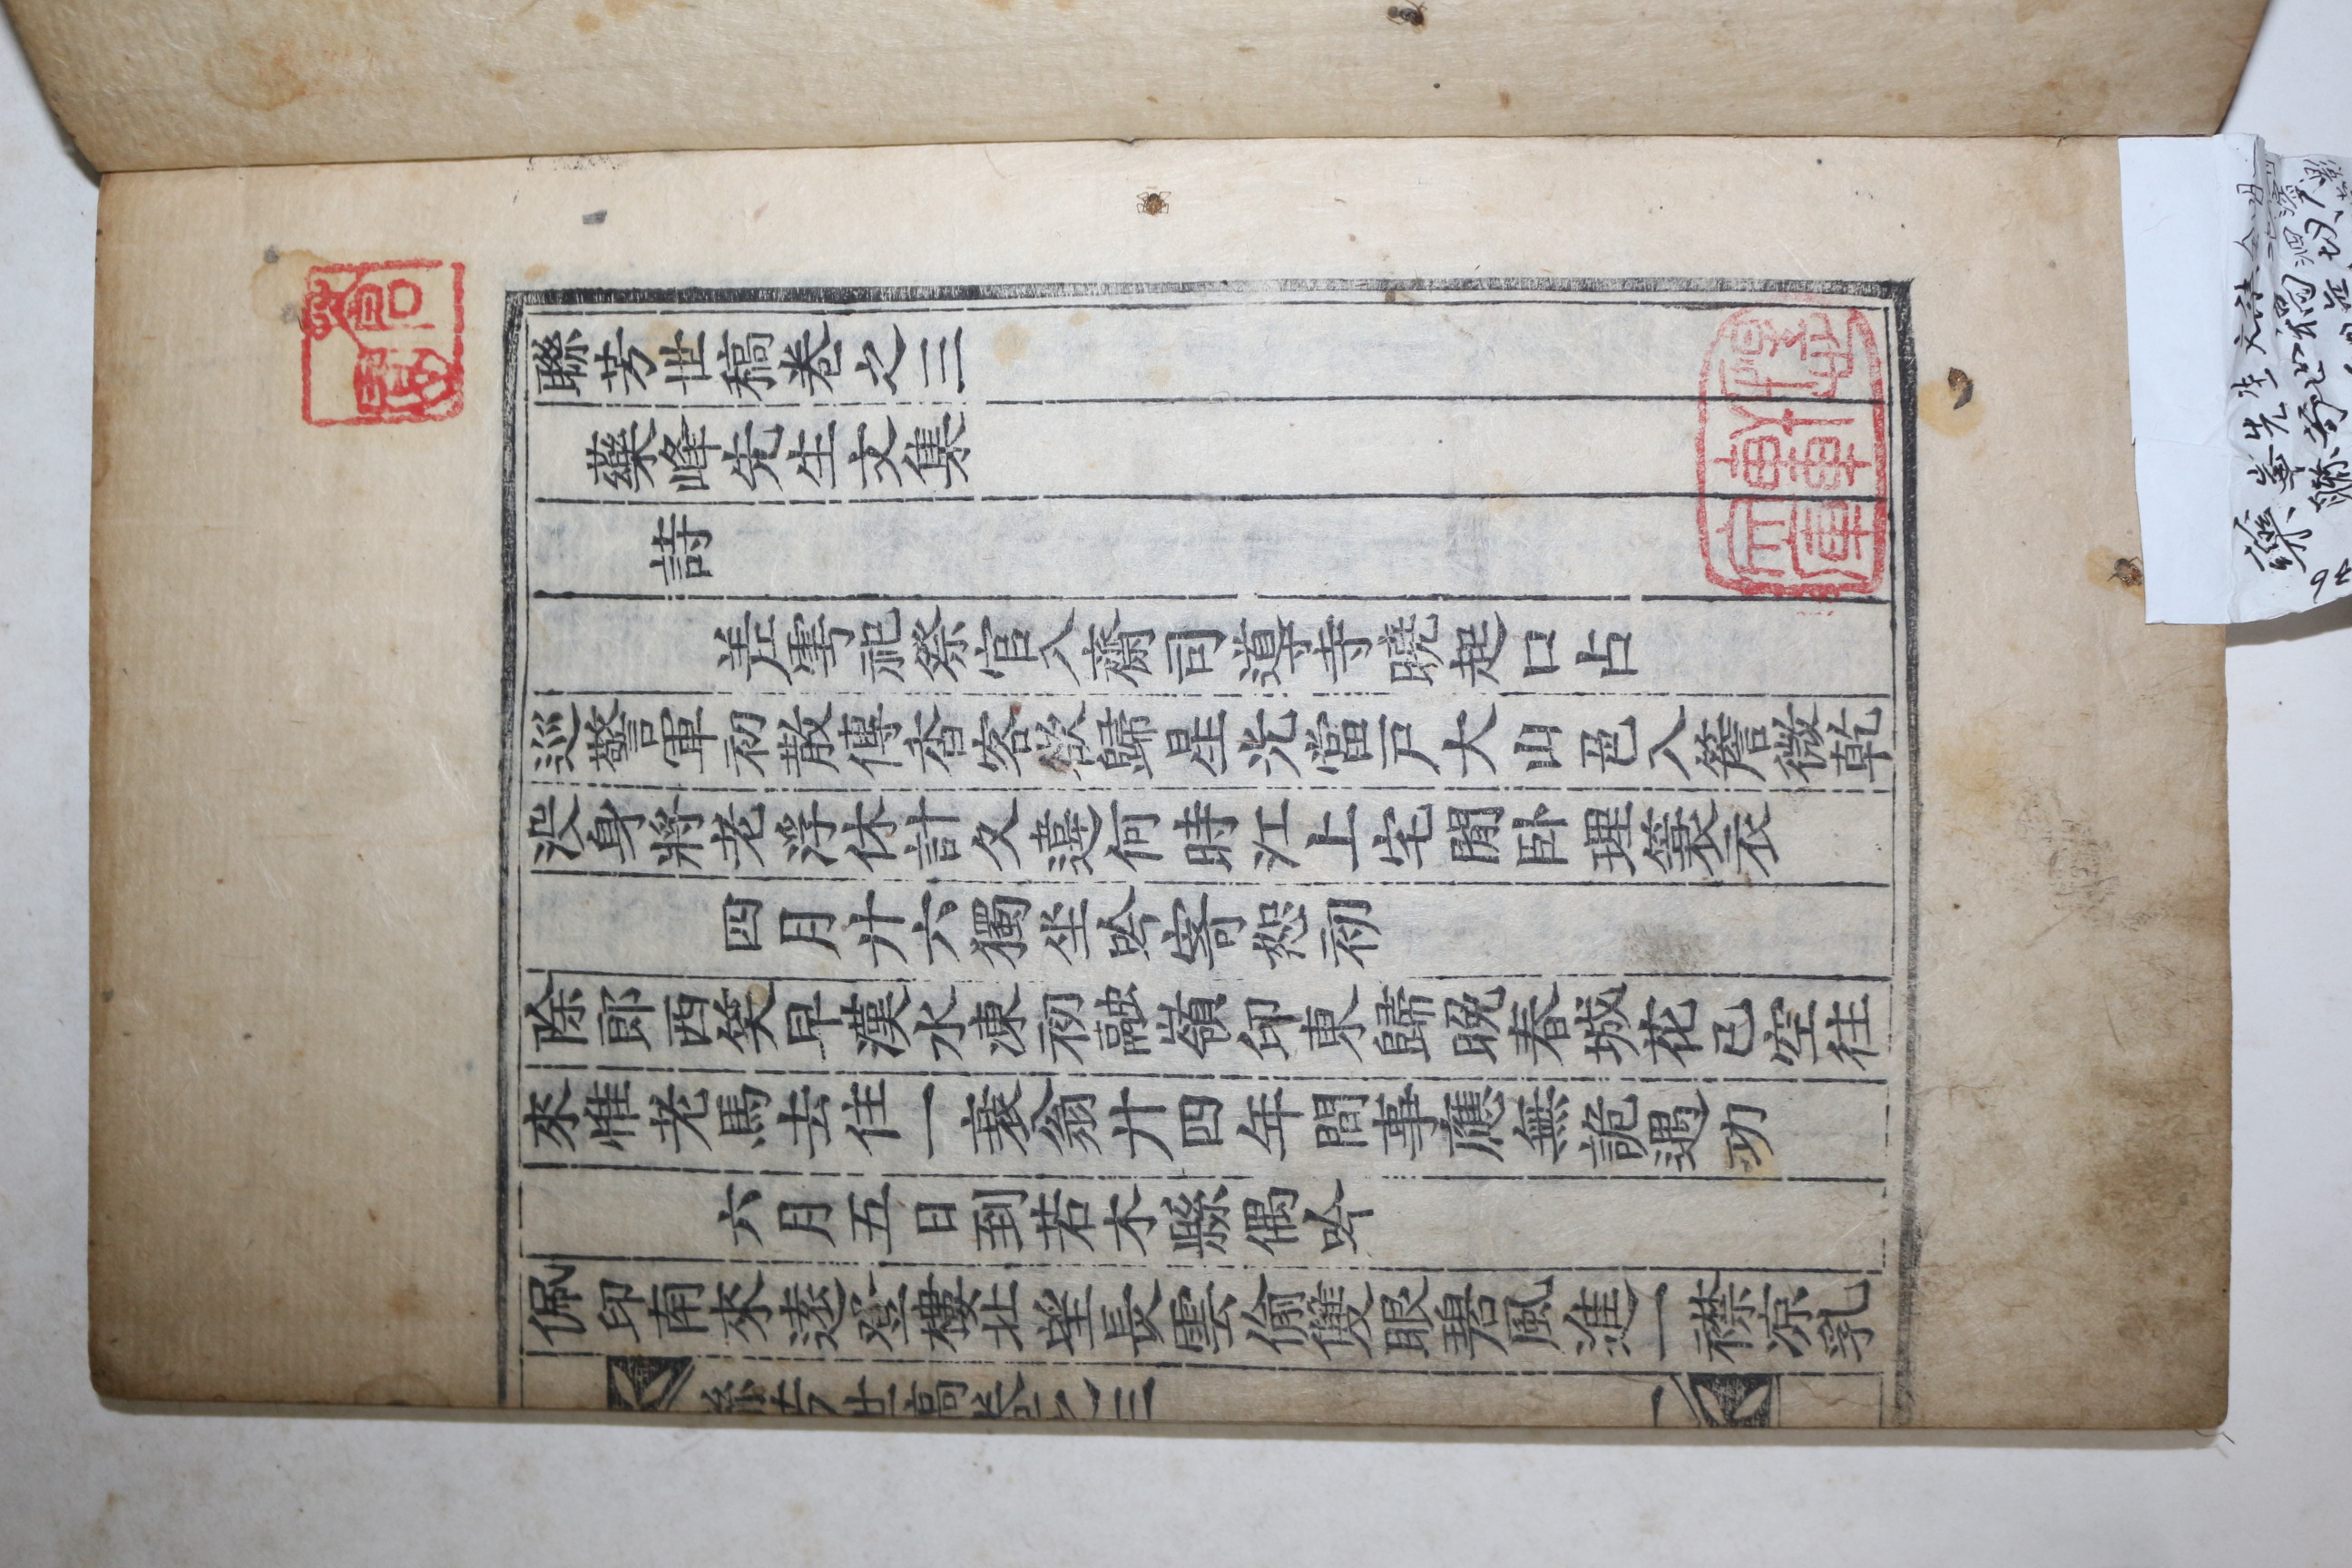 聯芳世稿卷之三
藥峰先生文集
詩
差雩祀祭官入齋司導寺曉起口占
巡警軍初散傳香客欲歸星光當戶大山色入簷微乾
沒身將老浮休計久違何時江上宅閒卧理簑衣
四月廾六獨坐吟寄恕初
除郎西笑早漢水凍初融嶺印東歸晩春城花已空往
來惟老馬去住一衰翁廾四年間事應無詭遇功
六月五日到若木縣偶吟
佩印南來遠登樓北望長雲偷雙眼碧風進一襟凉乳
聯芳世稿卷之三
一
軒
文庫
藥峯先生文誌
聯芳世稿